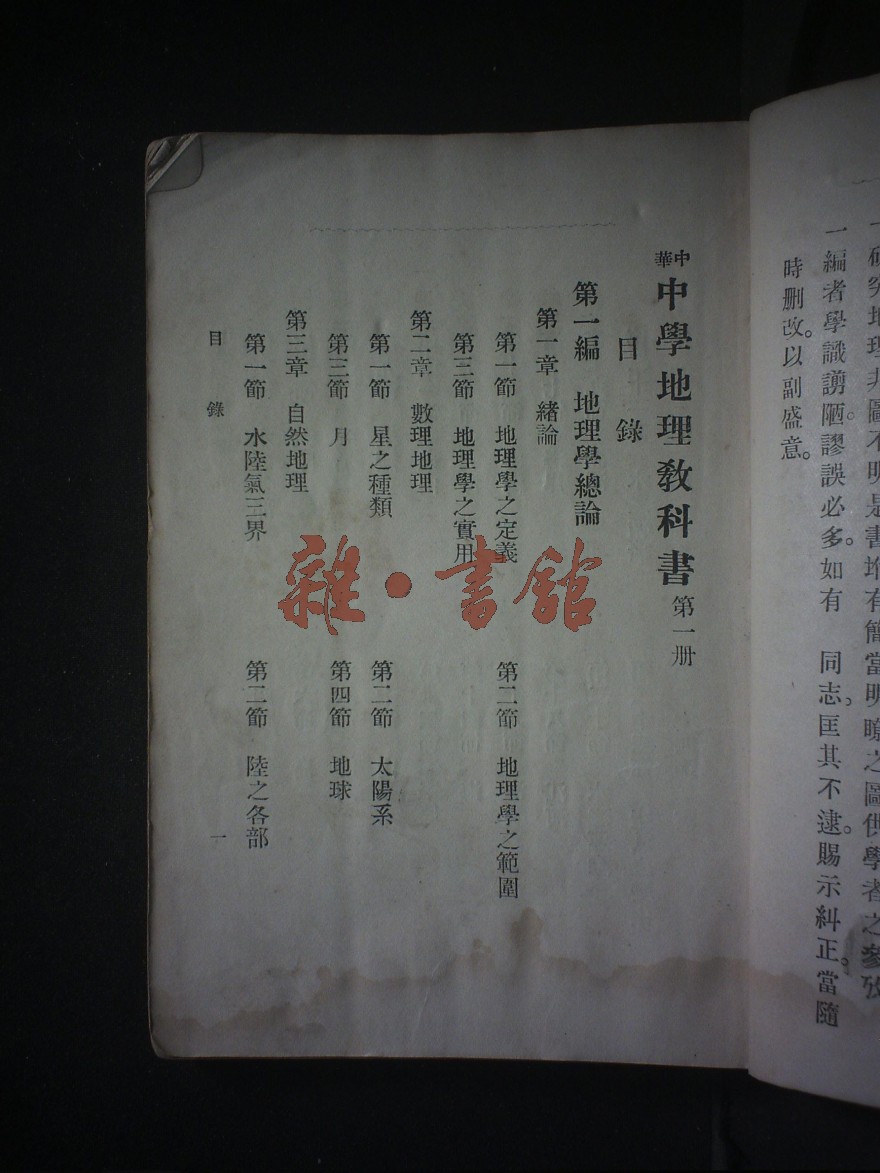 一研究地理非圖不明是書增有簡當明瞭之圖供學者之參攷
一編者學識譾陋。謬誤必多。如有　同志。匡其不逮。賜示糾正。當隨
時删改。以副盛意。
中華
中學地理敎科書 第一册
目　錄
第一編　地理學總論
第一章　緒論
第一節　地理學之定義　第二節　地理學之範圍
第三節　地理學之實用
第二章　數理地理
第一節　星之種類　第二節　太陽系
第三節　月　第四節　地球
第三章　自然地理
第一節　水陸氣三界　第二節　陸之各部
目　錄　一
雜·書館